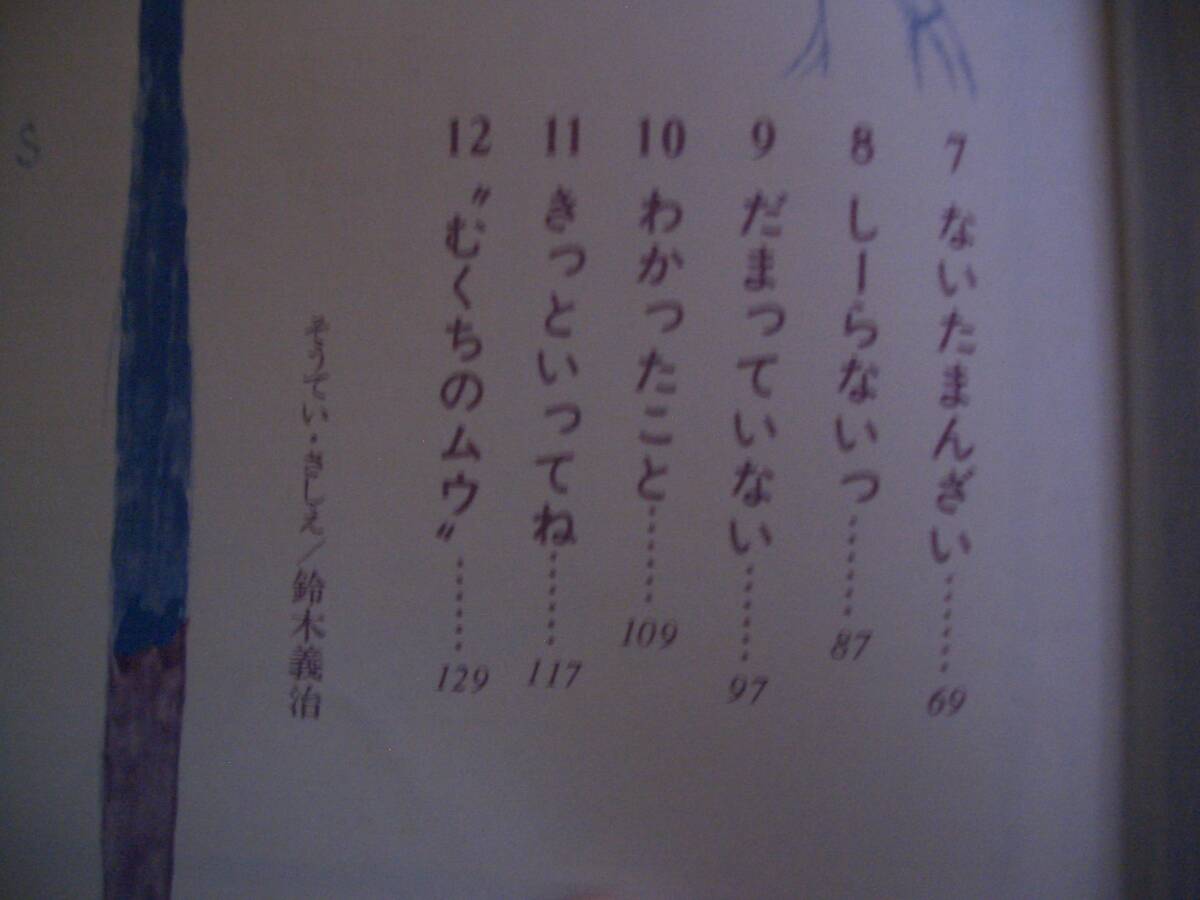 7 ないたまんざい……69
8 しーらないっ……87
9 だまっていない……97
10 わかったこと……109
11 きっといってね……117
12 〝むくちのムウ〟……129
そうてい・さしえ／鈴木義治
S